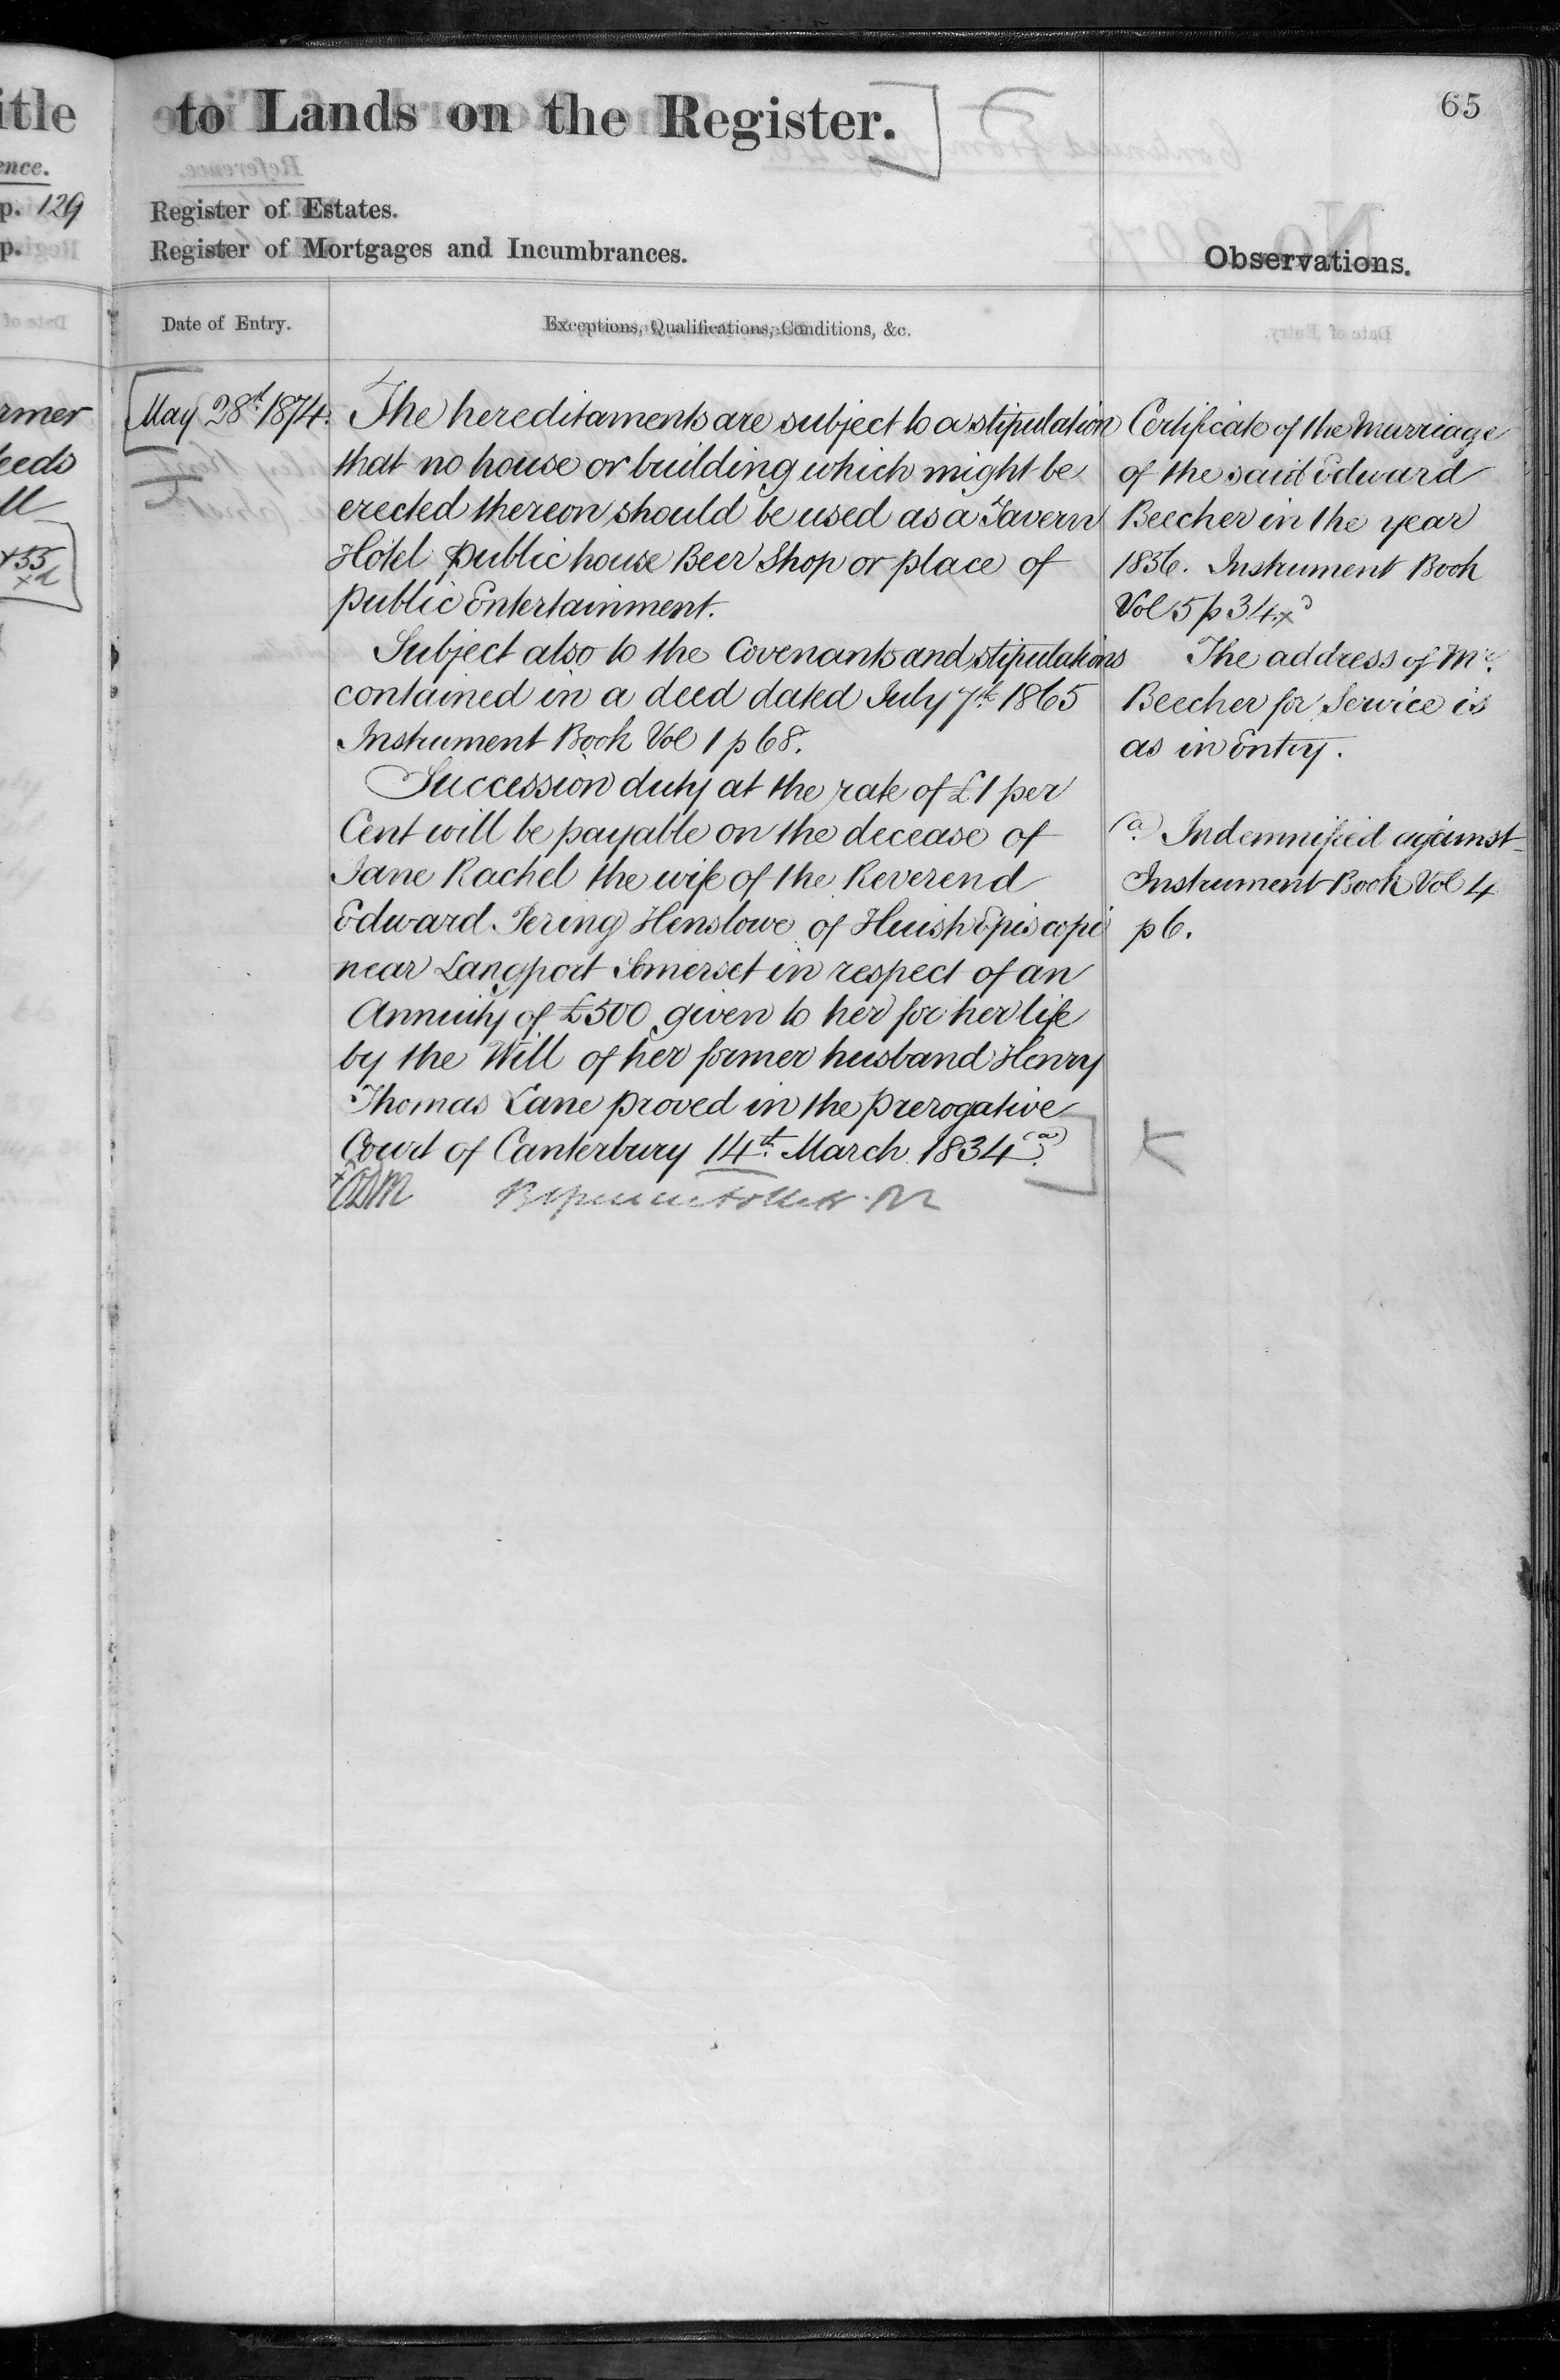 itle
ence.
p. 129
p.
rmer
eeds
ll
to Lands on the Register.
65
Register of Estates.
Register of Mortgages and Incumbrances.
Observations.
Date of Entry.
Exceptions, Qualifications, Conditions, &c.
May 28th 1874.
The hereditaments are subject to a stipulation
that no house or building which might be
erected thereon should be used as a Tavern
Hotel public house Beer Shop or place of
public Entertainment.
Subject also to the Covenants and stipulations
contained in a deed dated July 7th 1865
Instrument Book Vol 1 p 68.
Succession duty at the rate of £1 per
Cent will be payable on the decease of
Jane Rachel the wife of the Reverend
Edward Pering Henslowe of Huish Episcopi
near Langport Somerset in respect of an
Annuity of £500 given to her for her life
by the Will of her former husband Henry
Thomas Lane proved in the prerogative
Court of Canterbury 14th March 1834 (a).
Certificate of the Marriage
of the said Edward
Beecher in the year
1836. Instrument Book
Vol 5 p 34
The address of Mr.
Beecher for Service is
as in Entry.
(a) Indemnified against
Instrument Book Vol 4
p 6.